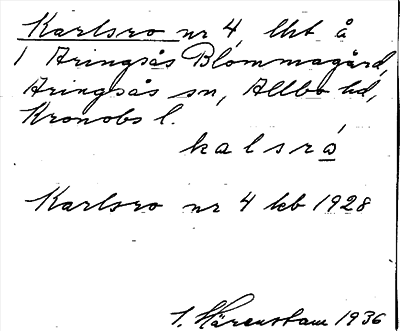 Karlsro nr 4, lht å
1 Aringsås Blommagård,
Aringsås sn, Allbo hd,
Kronobs l.
kalsró
Karlsro nr 4 kb 1928
S. Härenstam 1936